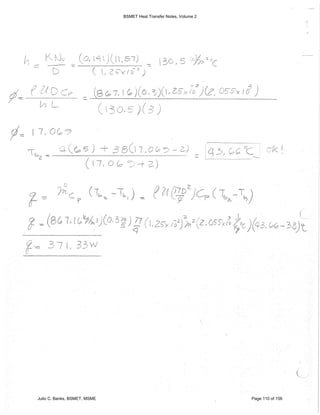 BSMET Heat Transfer Notes, Volume 2
h = K Nu / D = (0.141)(11.57) / (1.25x10⁻²) = 130.5 W/m²°C
ø = ρUDCp / hL = (867.16)(0.3)(1.25x10⁻²)(2.055x10³) / (130.5)(3)
ø = 17.067
Tb2 = 2(65) + 38(17.067-2) / (17.067+2) = 43.66°C ok!
q = ṁCp (Tb2 - Tb1) = ρU(πD²/4)Cp(Tb2 - Tb1)
q = (867.16 kg/m³)(0.3 m/s) π/4 (1.25x10⁻²)²m²(2.055x10³ J/kg°C)(43.66-38)°C
q = 371.33W
Julio C. Banks, BSMET, MSME
Page 110 of 158